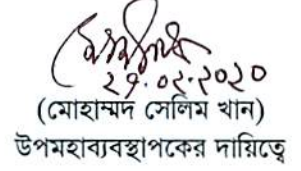 ২৭.০২.২০২০
(মোহাম্মদ সেলিম খান)
উপমহাব্যবস্থাপকের দায়িত্বে